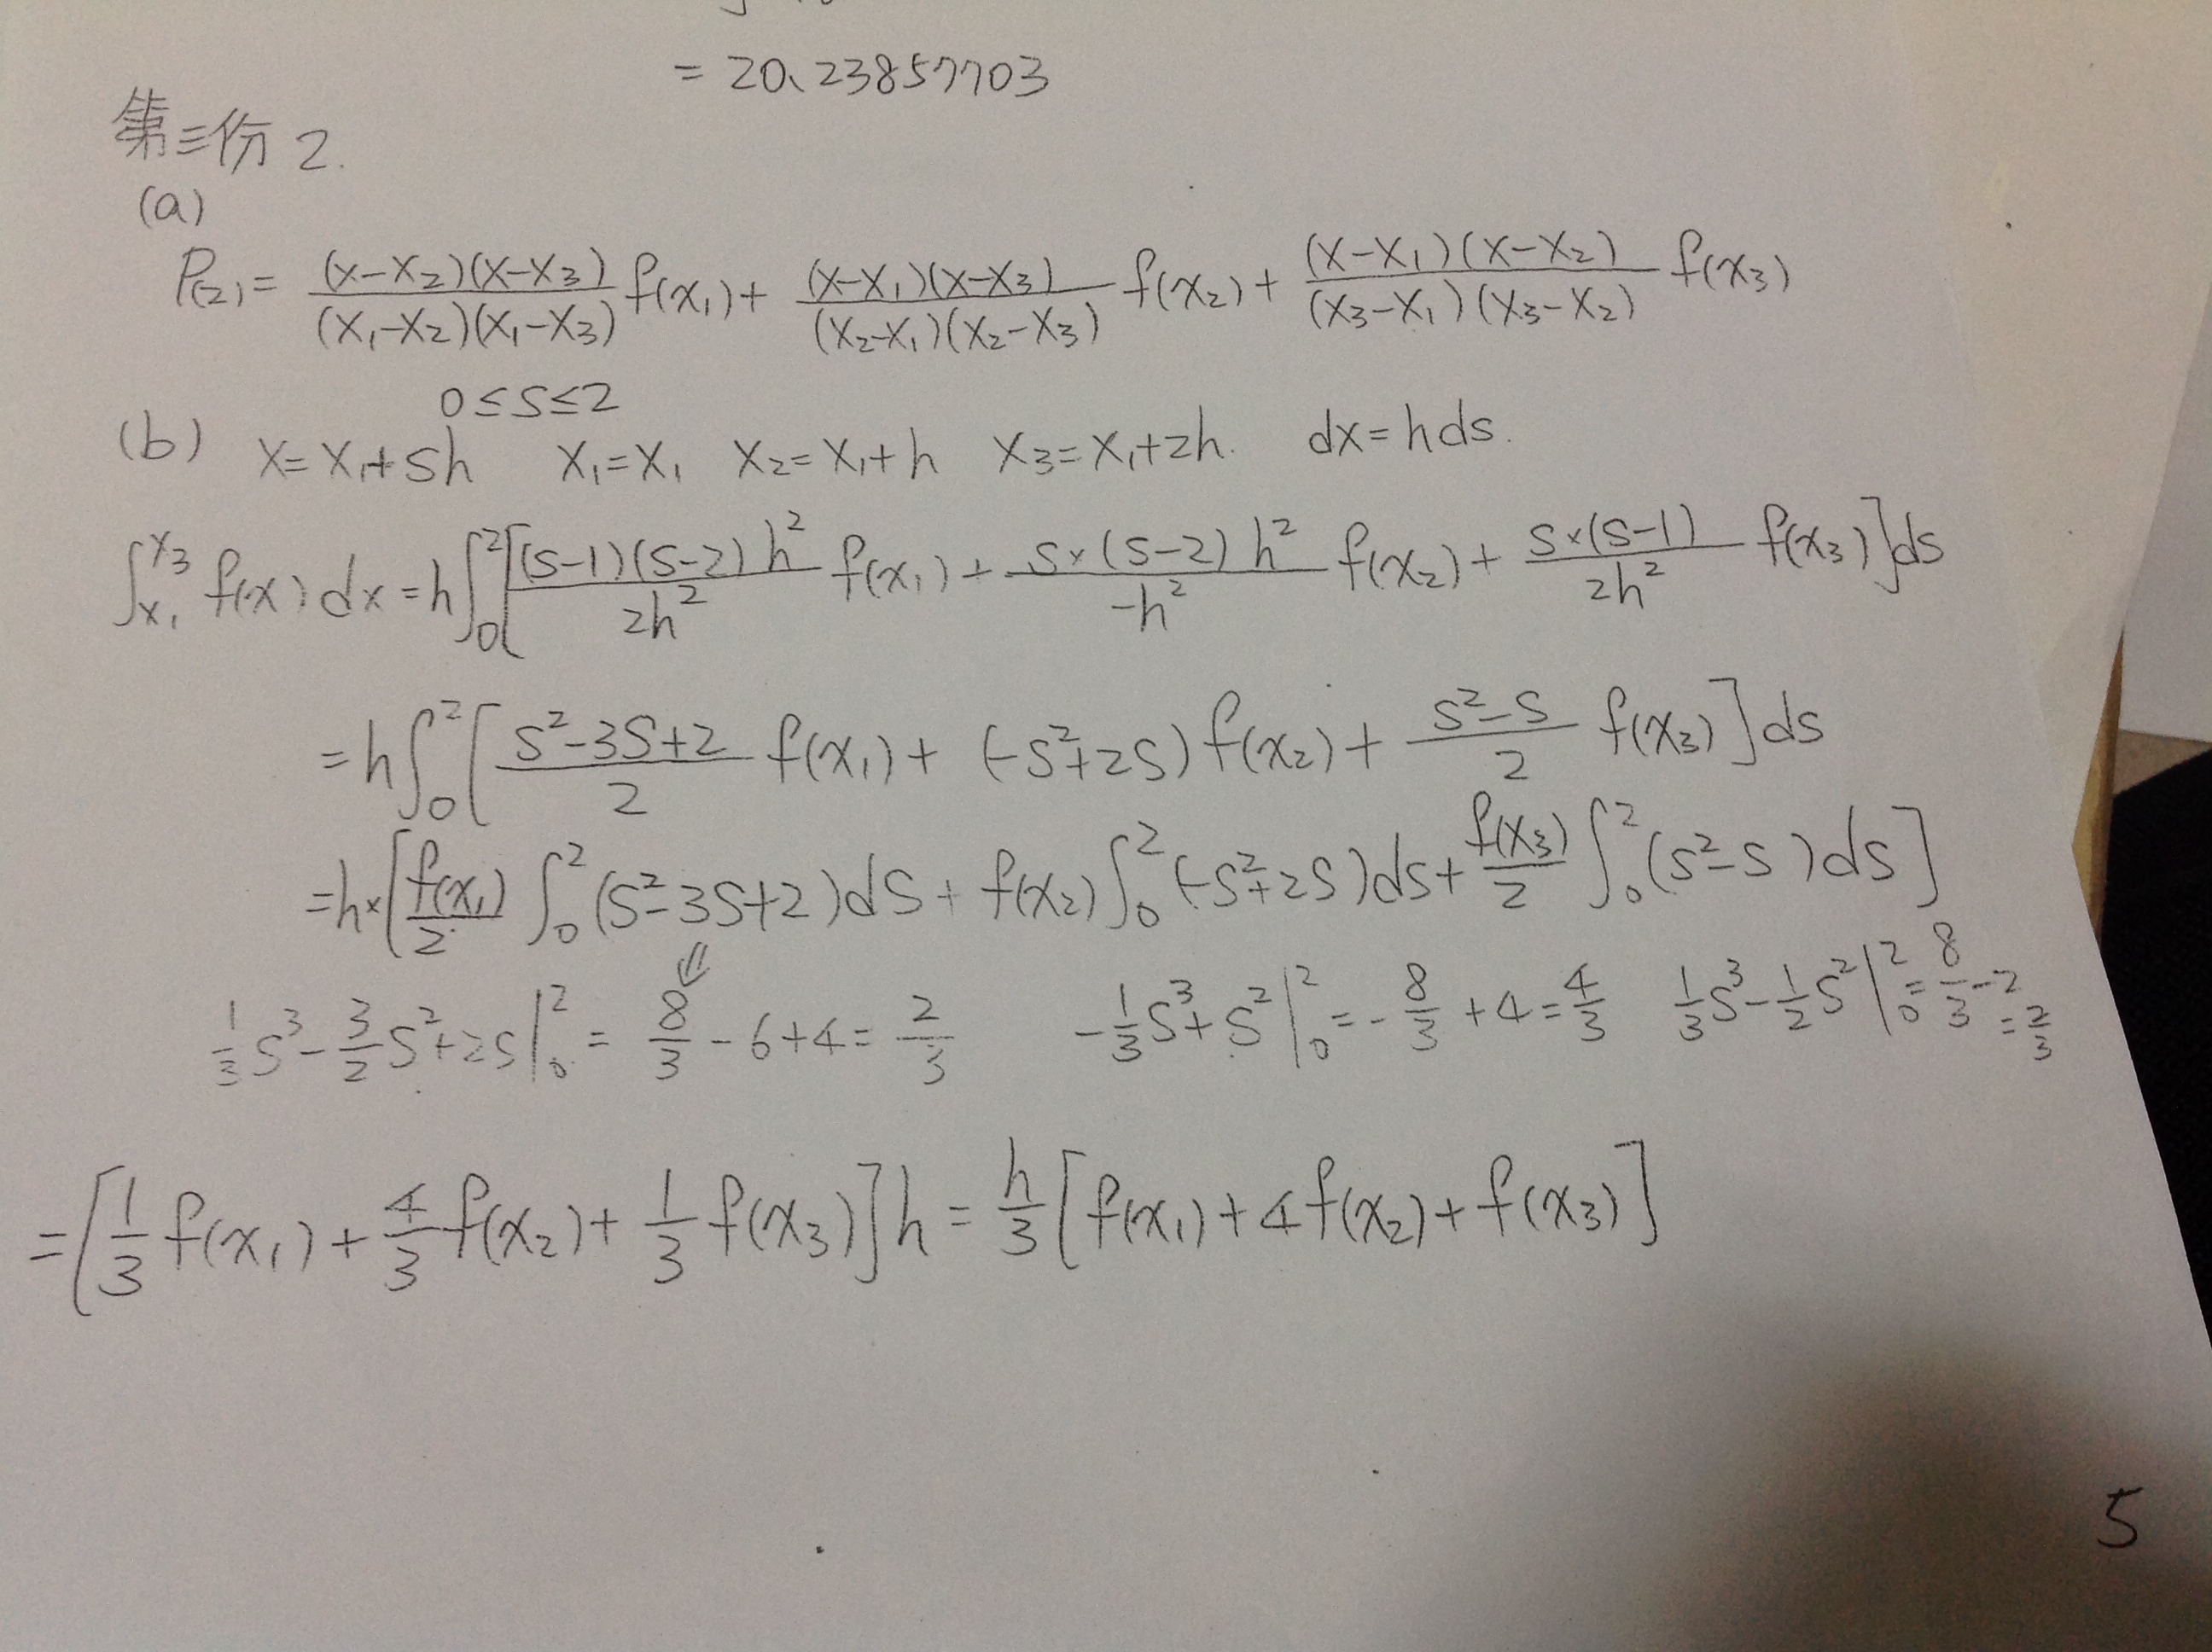 = 20.23857703
第三份 2.
(a)
P(2) = (x-x₂)(x-x₃)/(x₁-x₂)(x₁-x₃) f(x₁) + (x-x₁)(x-x₃)/(x₂-x₁)(x₂-x₃) f(x₂) + (x-x₁)(x-x₂)/(x₃-x₁)(x₃-x₂) f(x₃)
0≤s≤2
(b) x=x₁+sh x₁=x₁ x₂=x₁+h x₃=x₁+2h. dx=hds.
∫_{x₁}^{x₃} f(x)dx = h∫₀²[(s-1)(s-2)h²/2h² f(x₁) + s×(s-2)h²/-h² f(x₂) + s×(s-1)/2h² f(x₃)]ds
= h∫₀²[s²-3s+2/2 f(x₁) + (-s²+2s)f(x₂) + s²-s/2 f(x₃)]ds
= h×[f(x₁)/2 ∫₀²(s²-3s+2)ds + f(x₂)∫₀²(-s²+2s)ds + f(x₃)/2 ∫₀²(s²-s)ds]
⇓
1/3 s³ - 3/2 s² + 2s |₀² = 8/3 - 6 + 4 = 2/3 -1/3 s³ + s² |₀² = -8/3 + 4 = 4/3 1/3 s³ - 1/2 s² |₀² = 8/3 - 2 = 2/3
= [1/3 f(x₁) + 4/3 f(x₂) + 1/3 f(x₃)]h = h/3 [f(x₁) + 4f(x₂) + f(x₃)]
5